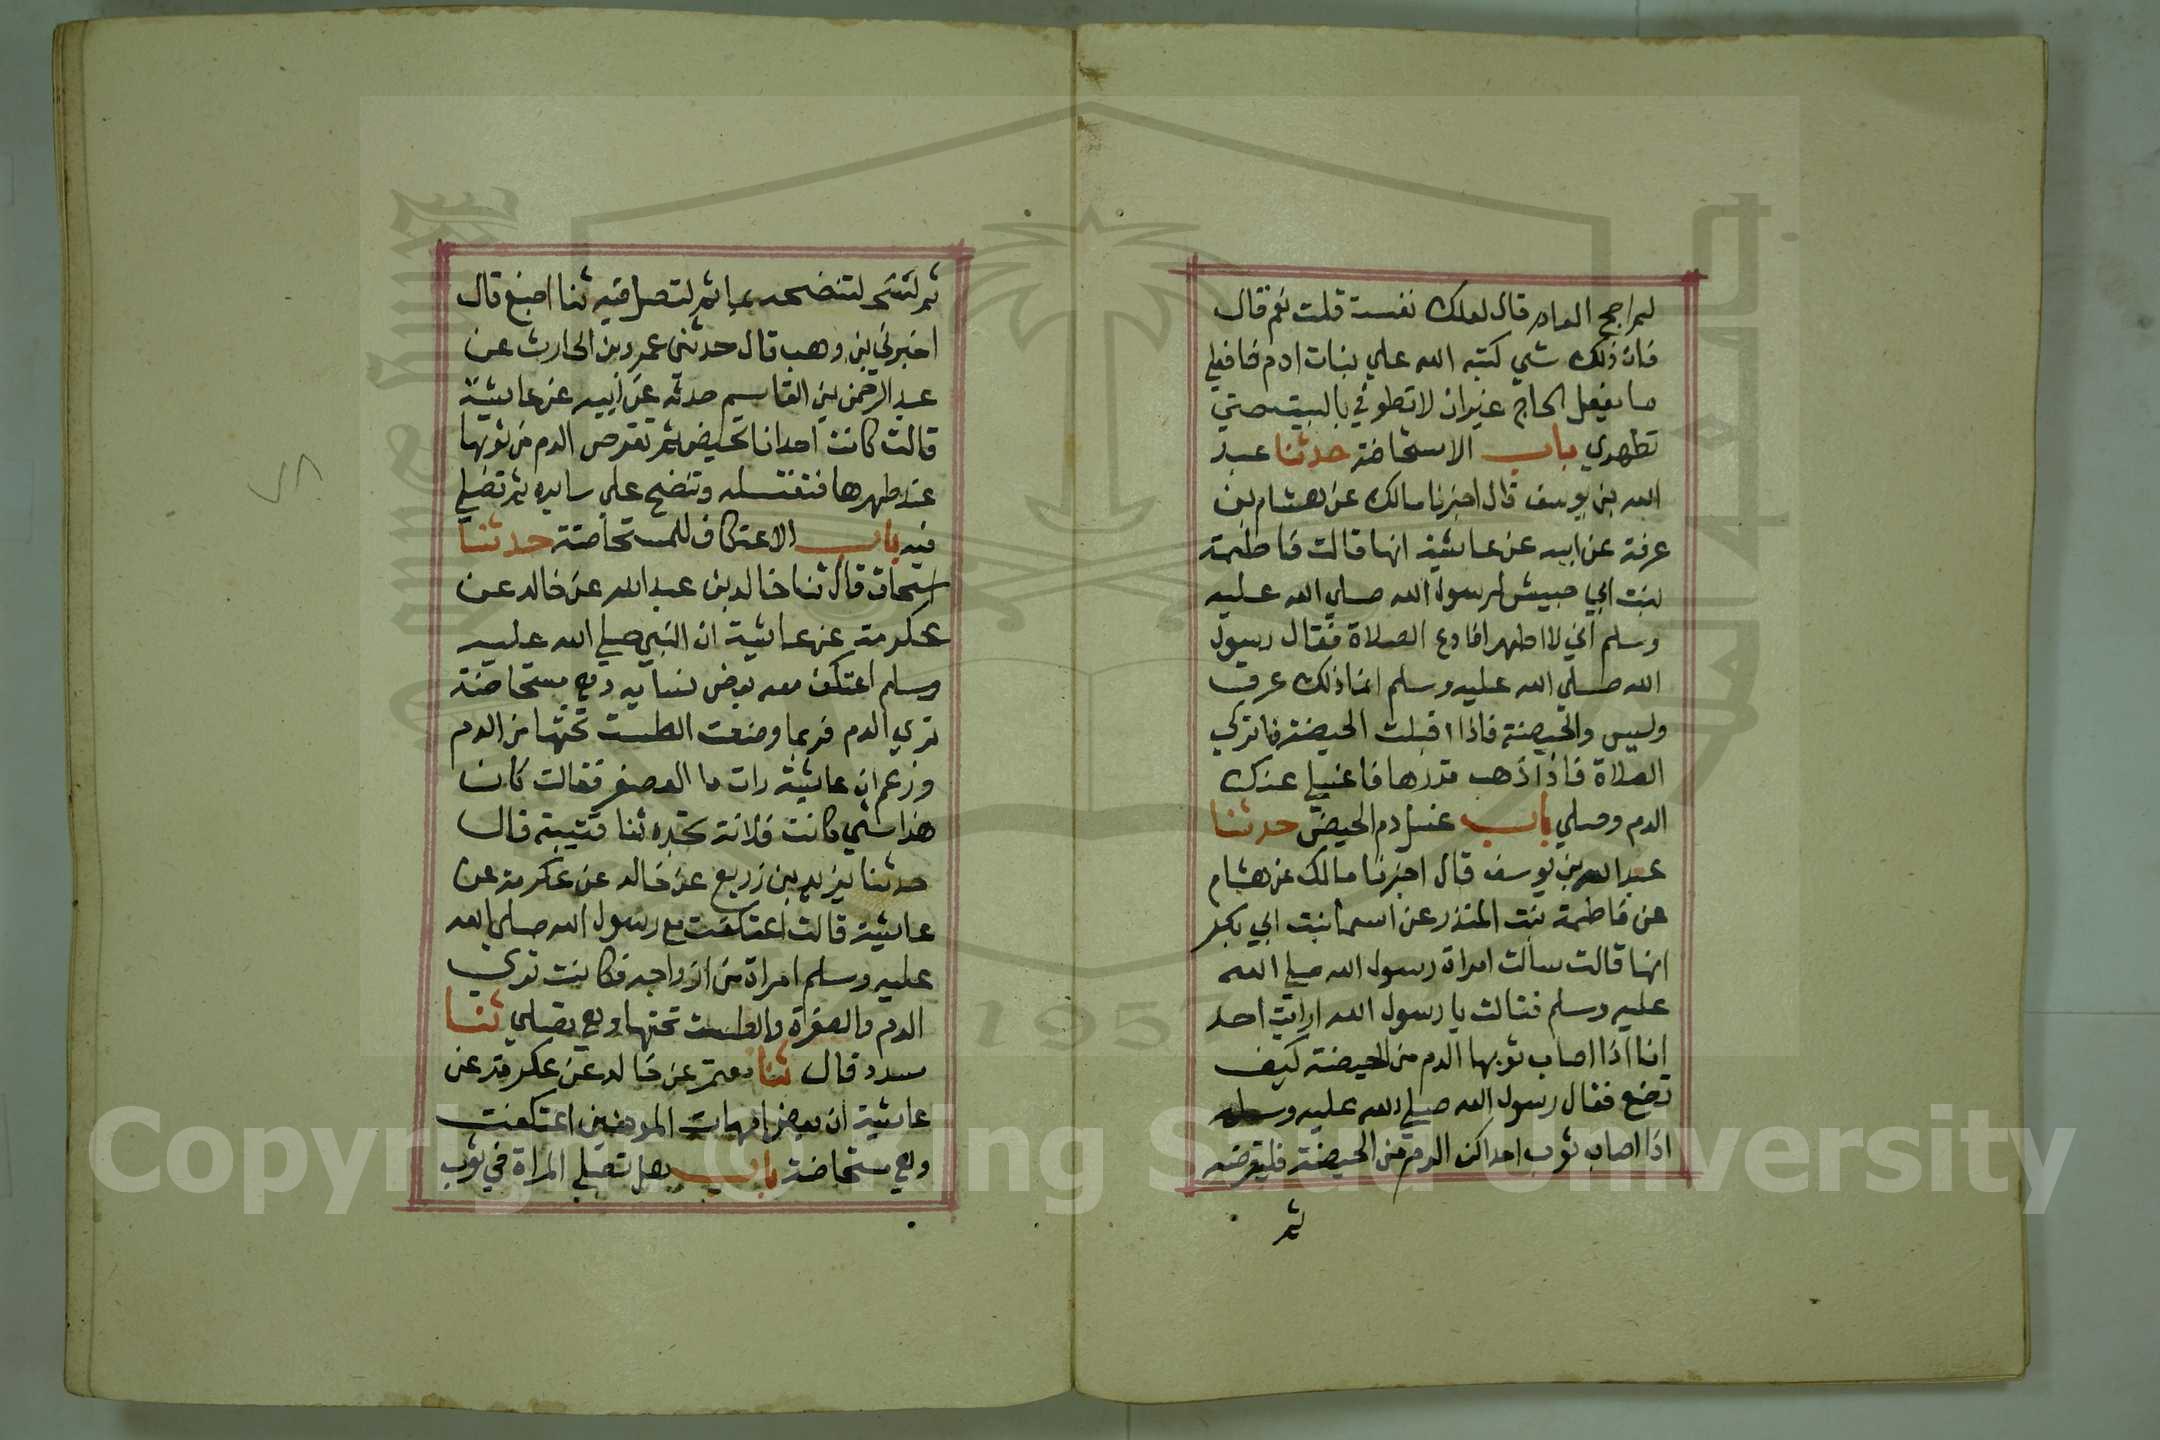 لم احج العام قال لعلك نفست قلت نعم قال
فان ذلك شي كتبه الله علي بنات ادم فافعلي
ما يفعل الحاج غيران لا تطوفي بالبيت حتي
تطهري باب الاستحاضة حدثنا عبد
الله بن يوسف قال اخبرنا مالك عن هشام بن
عرفة عن ابيه عن عايشة انها قالت فاطمة
بنت ابي حبيش لرسول الله صلي الله عليه
وسلم اني لا اطهر افادع الصلاة فقال رسول
الله صلي الله عليه وسلم انما ذلك عرق
وليس والحيضة فاذا اقبلت الحيضة فاتركي
الصلاة فاذا ذهب قدرها فاغسلي عنك
الدم وصلي باب غسل دم الحيض حدثنا
عبد الله بن يوسف قال اخبرنا مالك عن هشام
عن فاطمة بنت المنذر عن اسما بنت ابي بكر
انها قالت سالت امراة رسول الله صلي الله
عليه وسلم فقالت يا رسول الله ارايت احد
انا اذا اصاب ثوبها الدم من الحيضة كيف
تصنع فقال رسول الله صلي الله عليه وسلم
اذا اصاب ثوب احداكن الدم من الحيضة فلتقرضه
ثم
ثم لتنضحه بما ثم لتصل فيه ثنا اصبغ قال
اخبرني بن وهب قال حدثني عمرو بن الحارث عن
عبد الرحمن بن القاسم حدثه عن ابيه عن عايشة
قالت كانت احدانا تحيض ثم تقترص الدم من ثوبها
عند طهرها فتغتسله وتنضح علي سايره ثم تصلي
فيه باب الاعتكاف للمستحاضة حدثنا
اسحاق قال ثنا خالد بن عبد الله عن خالد عن
عكرمة عن عايشة ان النبي صلي الله عليه
وسلم اعتكف معه بعض نسايه وهي مستحاضة
تري الدم فربما وضعت الطست تحتها من الدم
وزعم ان عايشة رات ما العصفر فقالت كان
هذا شي كانت فلانة تجده ثنا قتيبة قال
حدثنا يزيد بن زريع عن خالد عن عكرمة عن
عايشة قالت اعتكفت مع رسول الله صلي الله
عليه وسلم امراة من ازواجه فكانت تري
الدم والصفرة والطست تحتها وهي تصلي ثنا
مسدد قال ثنا معتمر عن خالد عن عكرمة عن
عايشة ان بعض امهات المومنين اعتكفت
وهي مستحاضة باب هل تصلي المراة في ثوب
٧٨
1957
Copyright © King Saud University